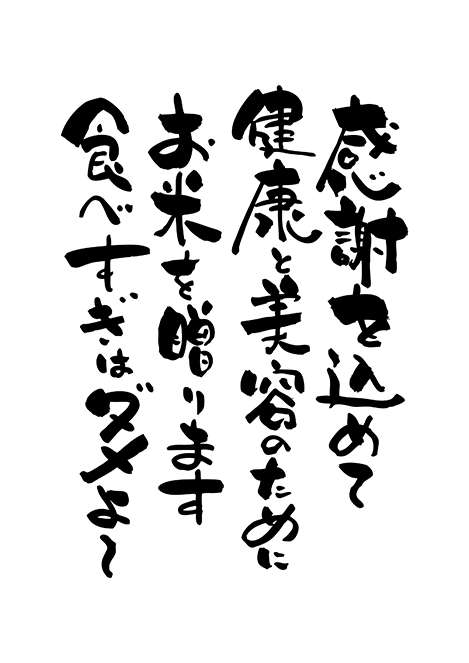 感謝を込めて
健康と美容のために
お米を贈ります
食べすぎはダメよ～